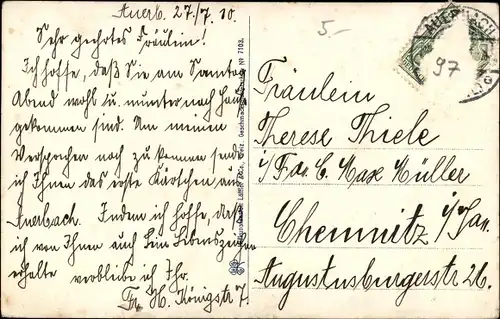 Auerb. 27./7. 10.
Sehr geehrtes Fräulein!
Ich hoffe, daß Sie am Sonntag
Abend wohl u. munter nach Hause
gekommen sind. Um meinen
Versprechen nach zu kommen sende
ich Ihnen das erste Kärtchen aus
Auerbach. Indem ich hoffe, daß
ich von Ihnen auch ein Lebenszeichen
erhalte verbleibe ich Ihr.
Fr. H. Königstr. 7.
Nº 7103.
5.-
AUERBACH
97
Fräulein
Therese Thiele
i/Fa. C. Max Müller
Chemnitz i/Sa.
Augustusburgerstr 26.